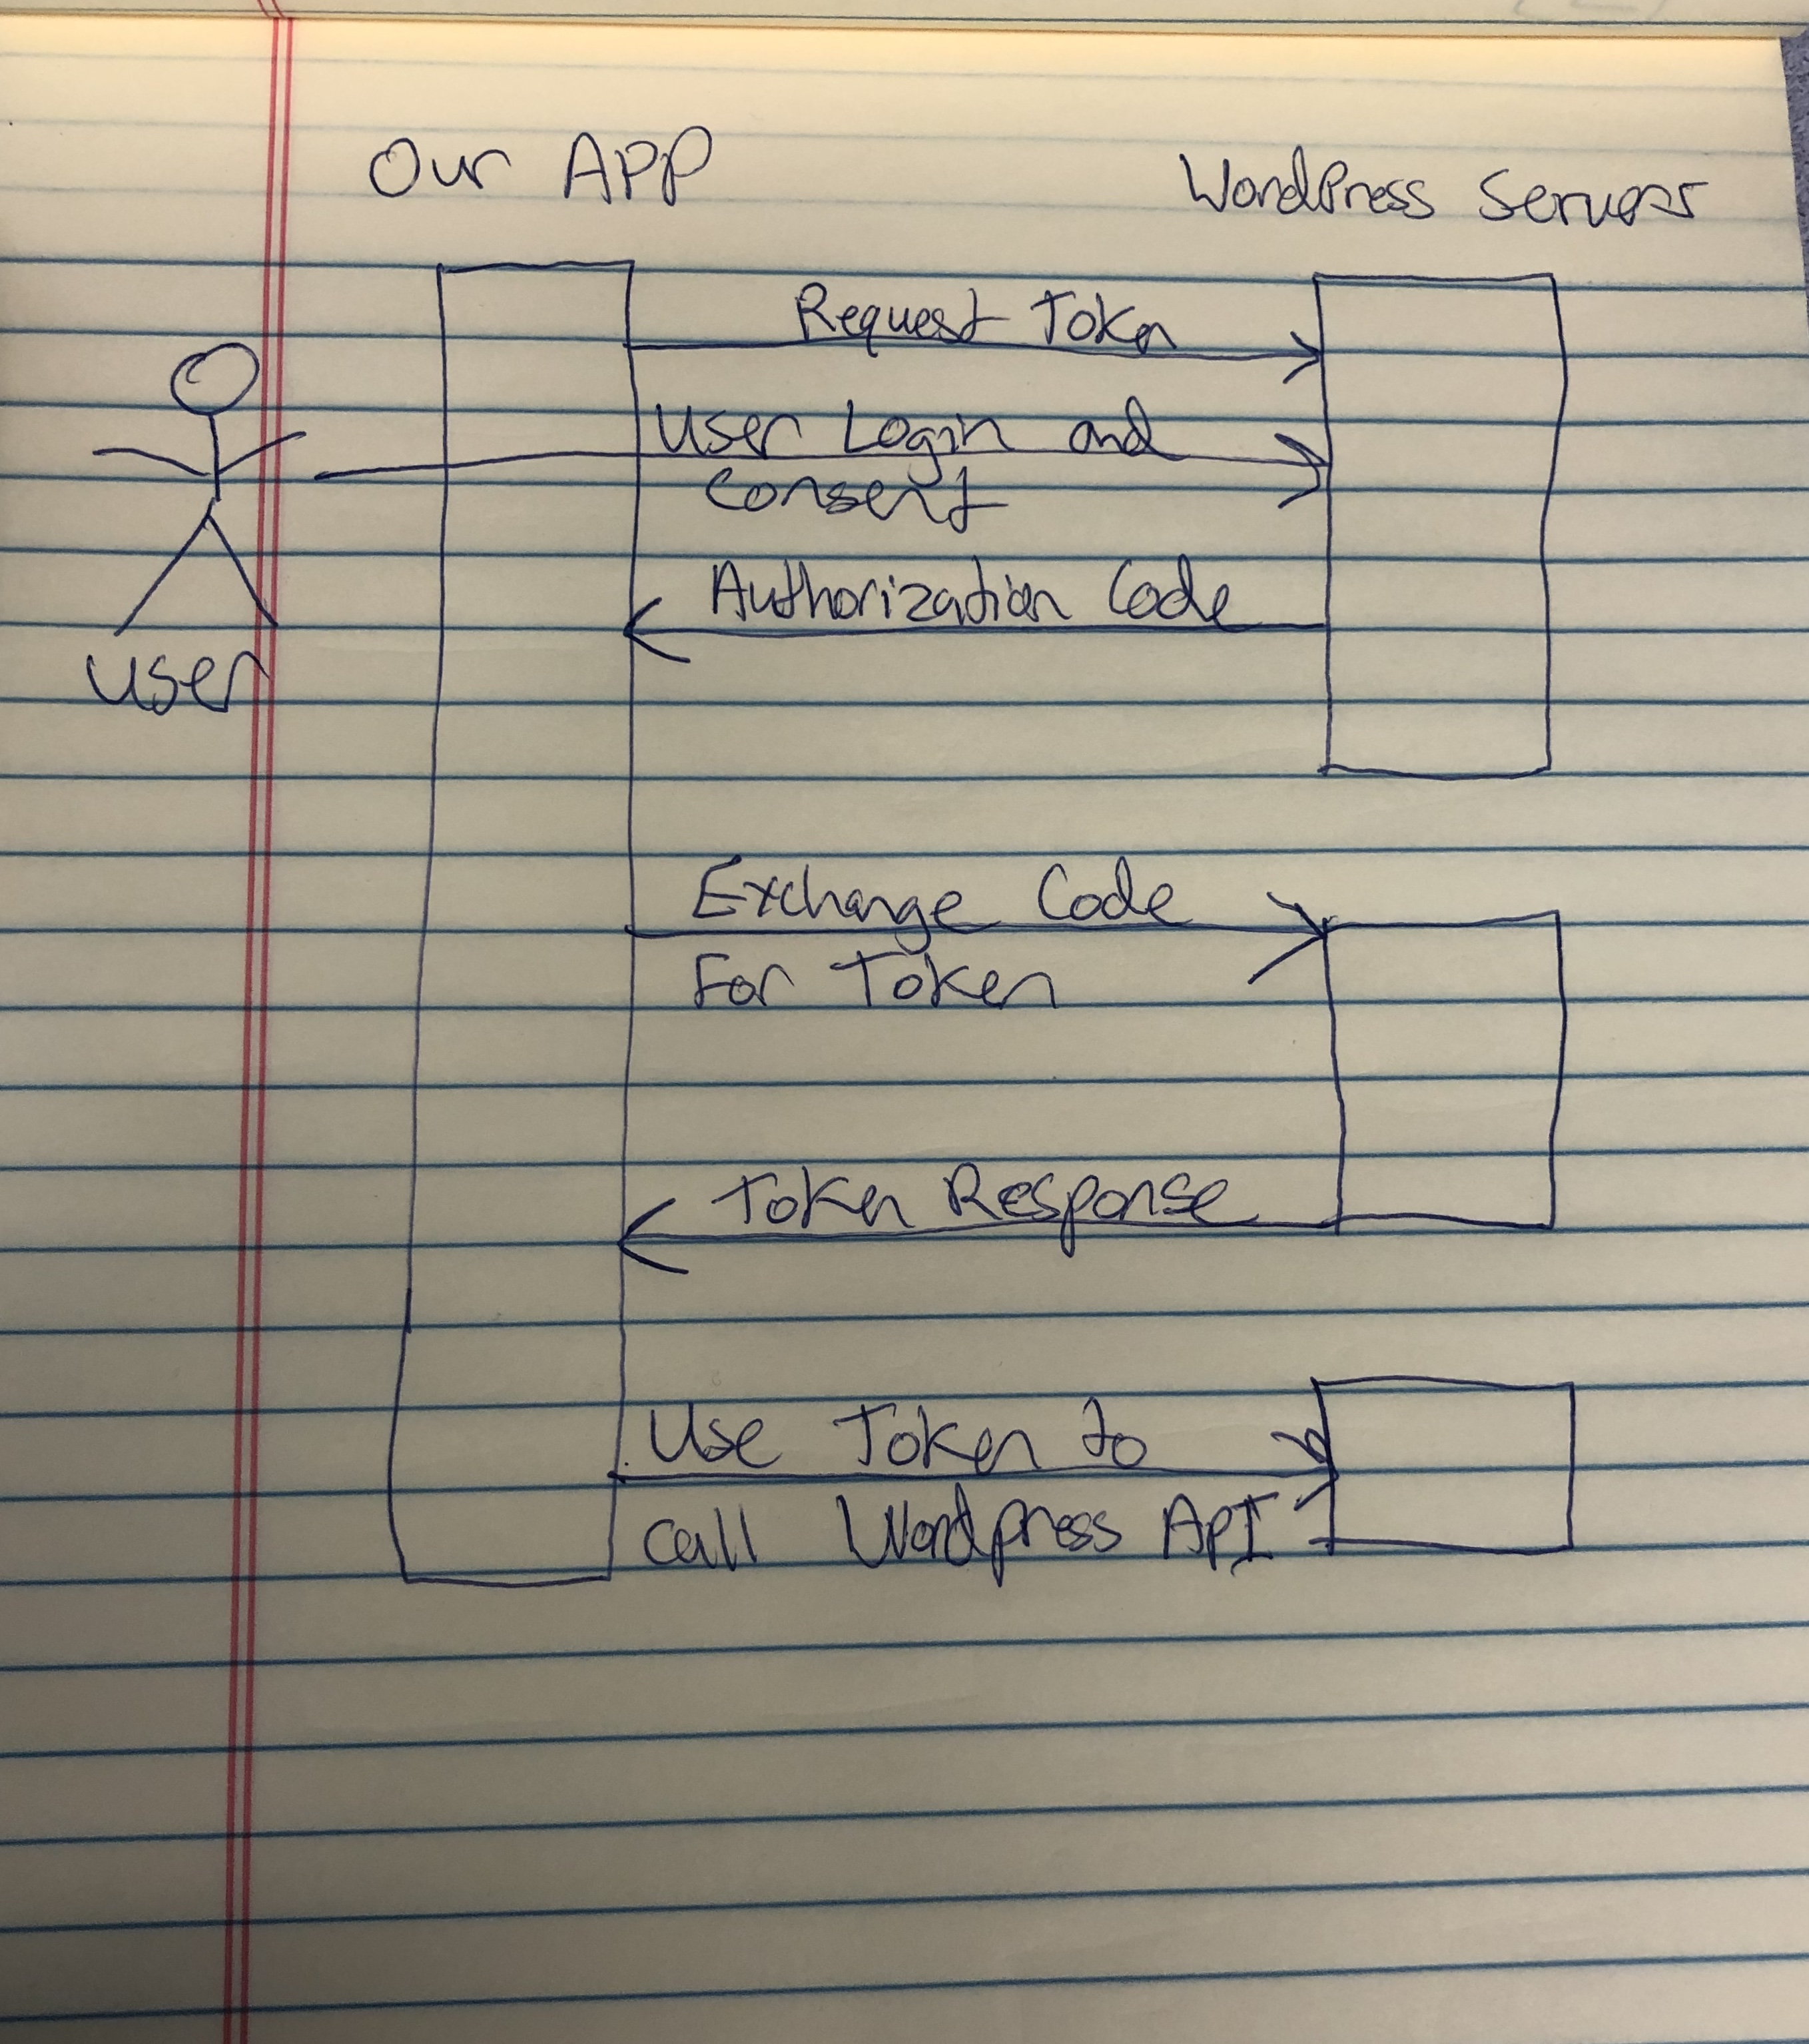 Our APP
WordPress Servers
Request Token
User Login and
Consent
Authorization Code
User
Exchange Code
For Token
Token Response
Use Token to
call Wordpress API